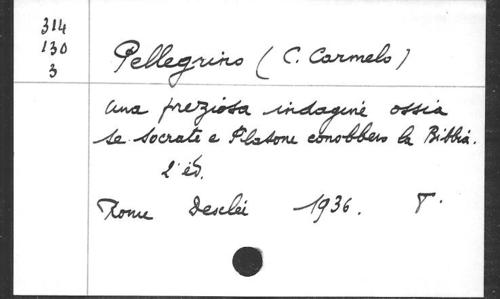 314
130
3
Pellegrino (C. Carmelo)
una preziosa indagine ossia
se Socrate e Platone conobbero la Bibbia.
2' éd.
Rome Desclée 1936. T.